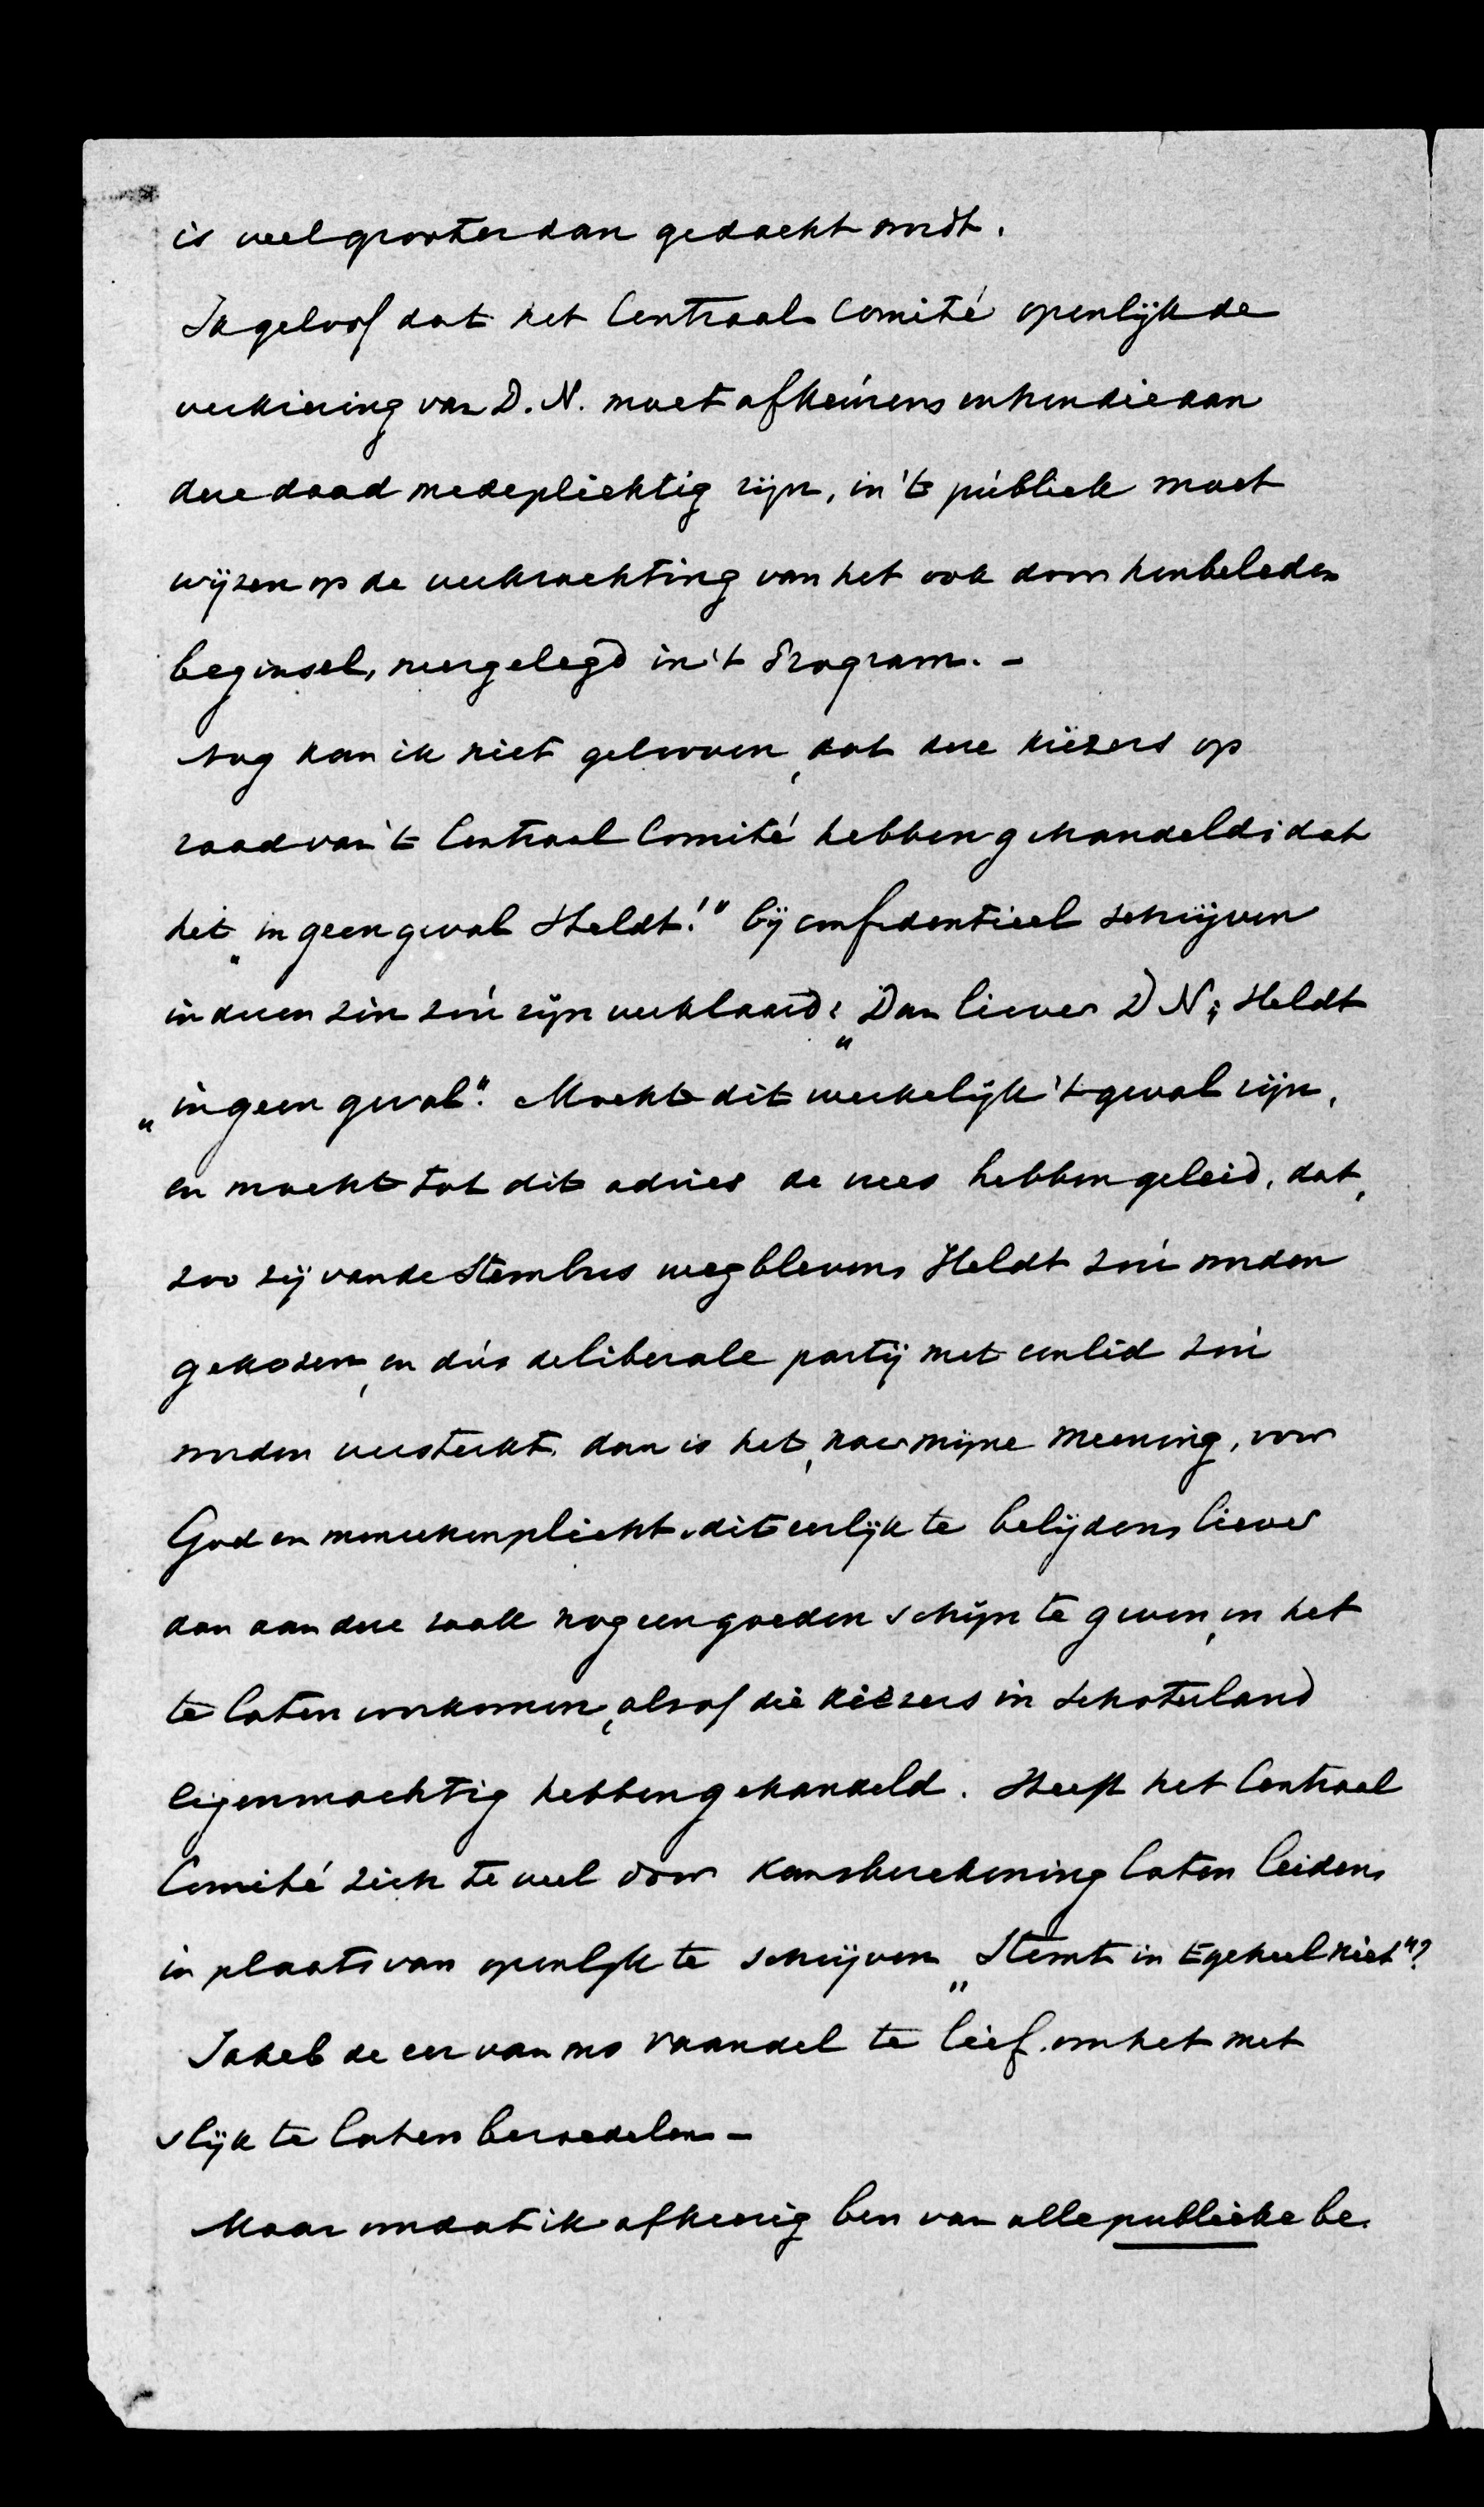 is veel grooter dan gedacht wordt.
Ik geloof dat het Centraal Comité openlijk de
verkiezing van D. N. moet afkeuren, en hen die aan
deze daad medeplichtig zijn, in 't publiek moet
wijzen op de verkrachting van het ook door hen beleden
beginsel, neergelegd in 't Program. -
Nog kan ik niet gelooven, dat deze kiezers op
raad van 't Centraal Comité hebben gehandeld; dat
het „in geen geval Heldt!" bij confidentieel schrijven
in dezen zin zou zijn verklaard: „Dan liever D N; Heldt
„in geen geval". Mocht dit werkelijk 't geval zijn,
en mocht tot dit advies de vrees hebben geleid, dat,
zoo zij van de stembus wegbleven, Heldt zou worden
gekozen, en dus de liberale partij met een lid zou
worden versterkt, dan is het, naar mijne meening, voor
God en menschen plicht, dit eerlijk te belijden, liever
dan aan deze zaak nog een goeden schijn te geven, en het
te laten voorkomen, alsof die kiezers in Schoterland
eigenmachtig hebben gehandeld. Heeft het Centraal
Comité zich te veel door kansberekening laten leiden,
in plaats van openlijk te schrijven „Stemt in 't geheel niet"?
Ik heb de eer van ons vaandel te lief, om het met
slijk te laten bezoedelen -
Maar omdat ik afkeerig ben van alle publieke be-